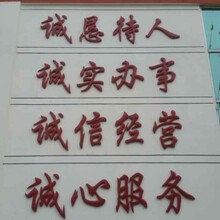 诚恳待人
诚实办事
诚信经营
诚心服务